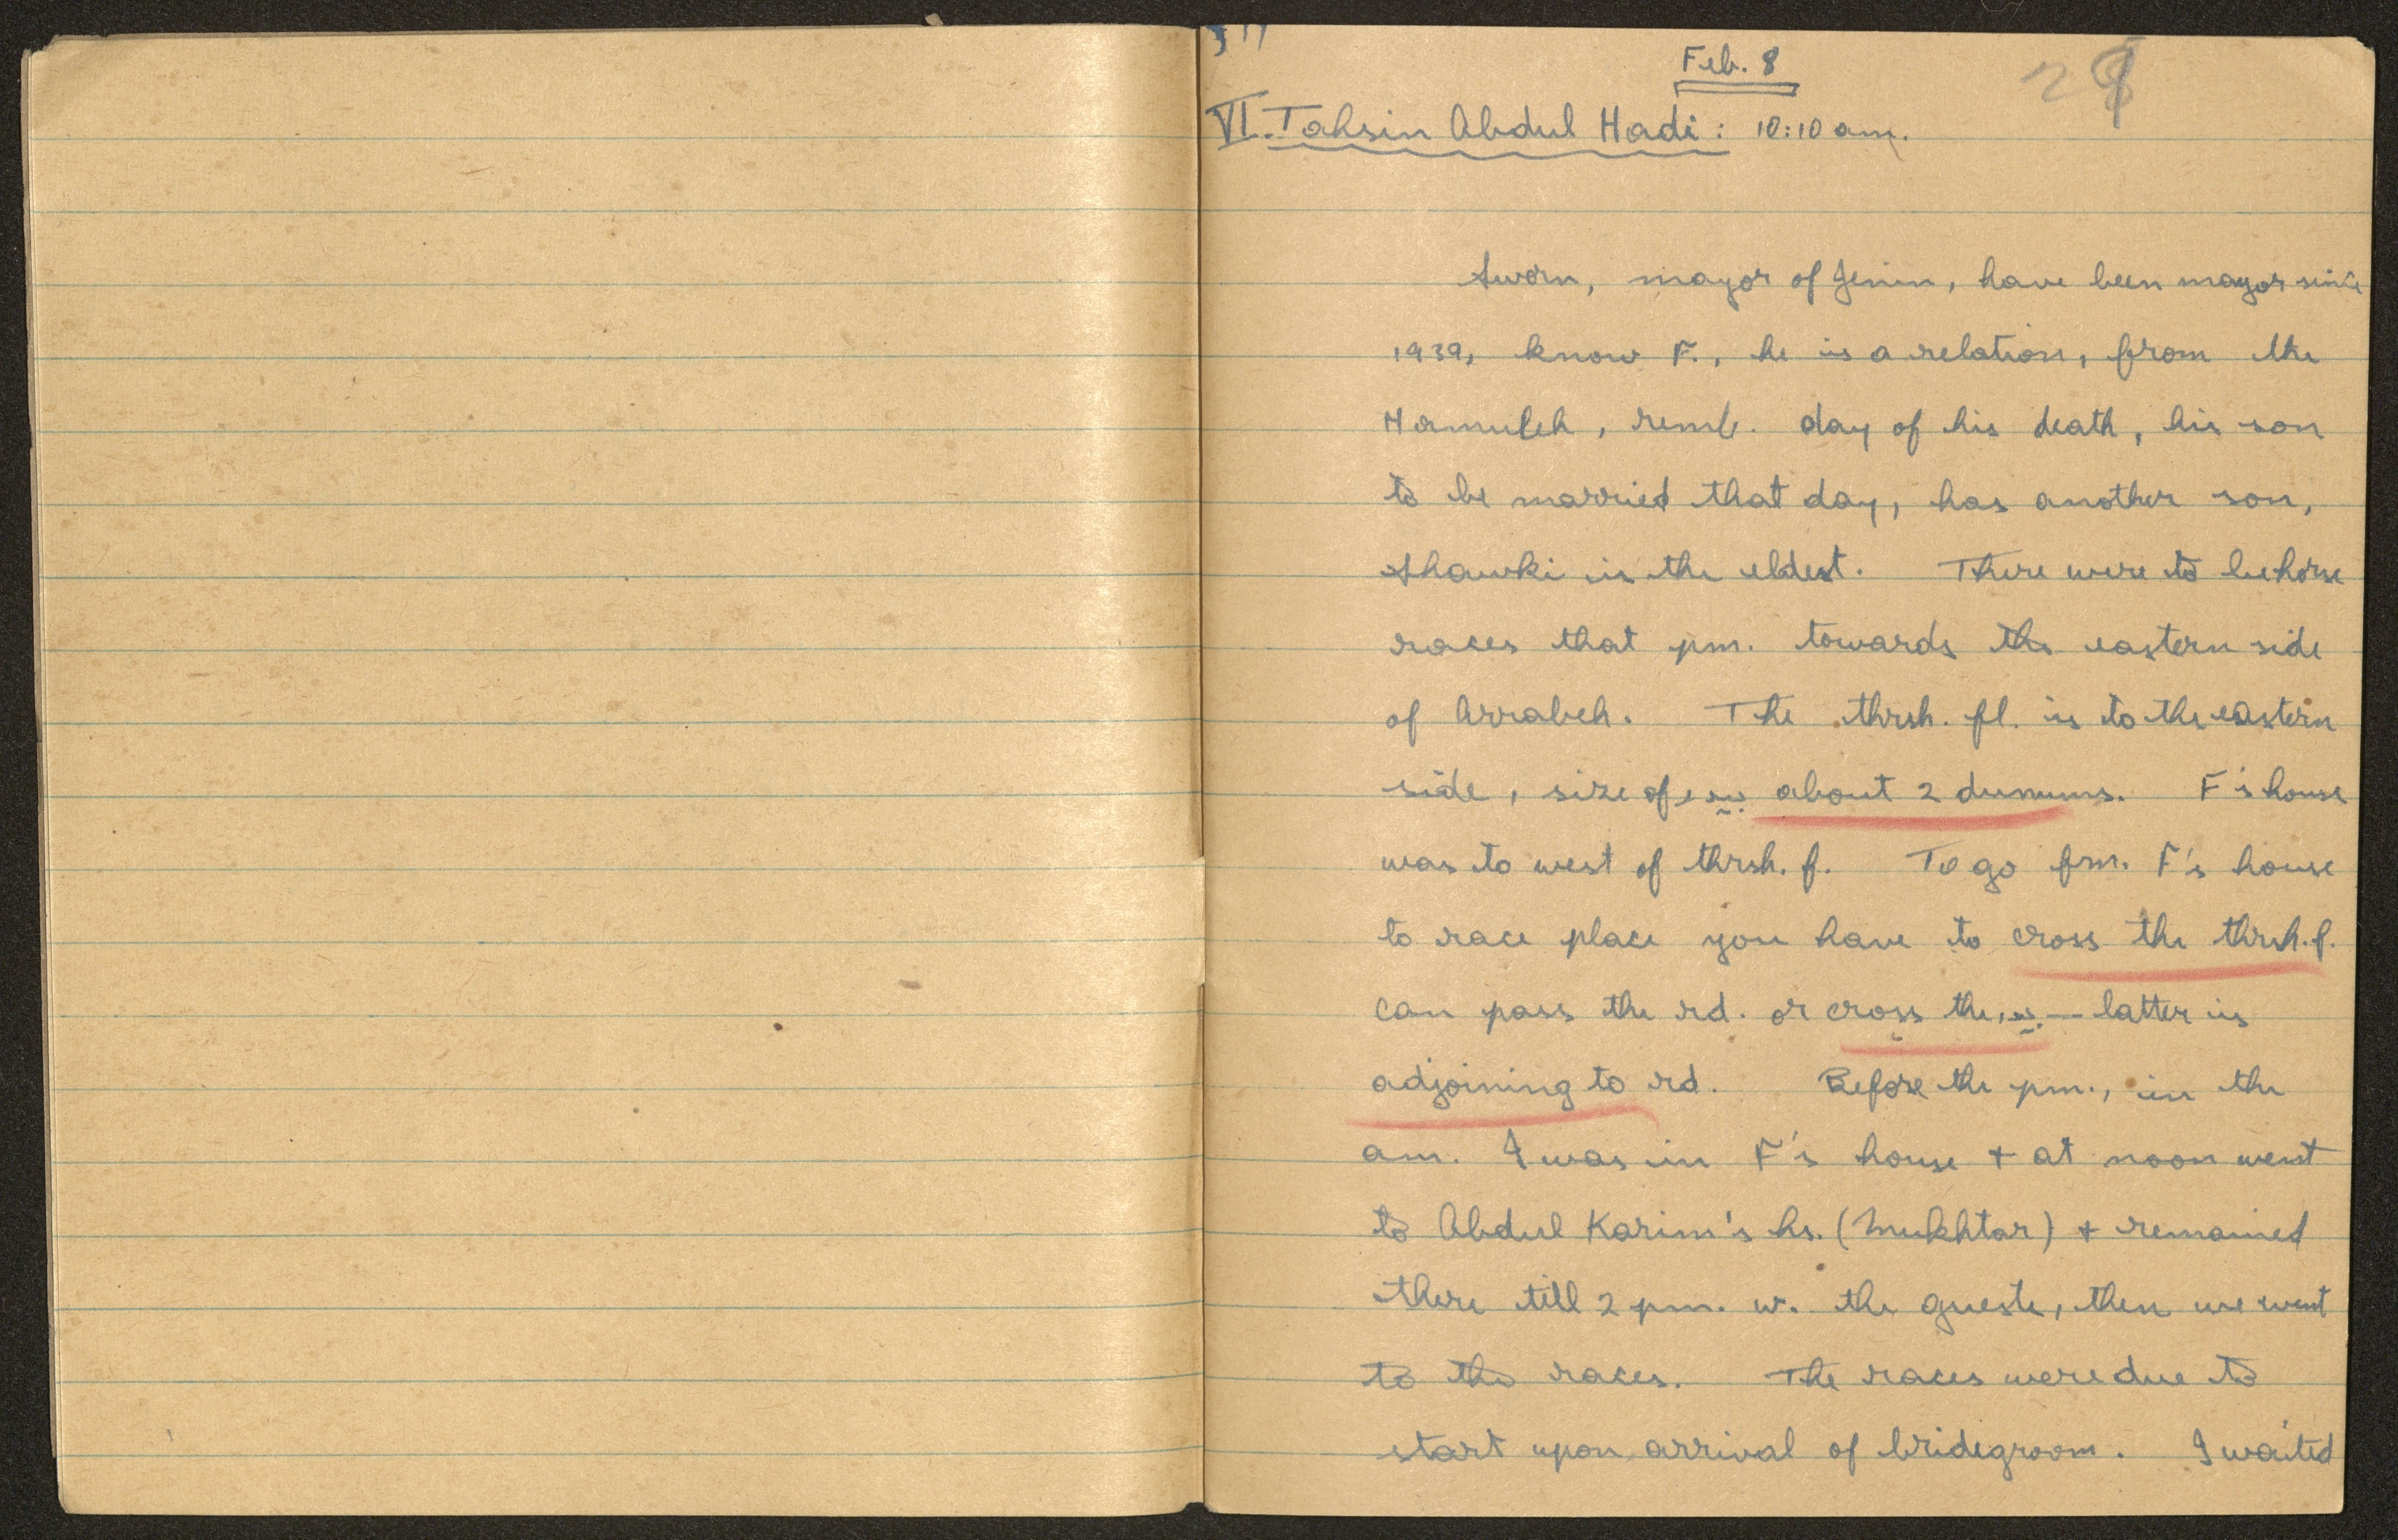 Feb. 8
28
VI. Tahsin Abdul Hadi: 10:10 am.
Sworn, mayor of Jenin, have been mayor since
1939, know F., he is a relation, from the
Hamuleh, remb. day of his death, his son
to be married that day, has another son,
Shawki is the eldest. There were to be horse
races that pm. towards the eastern side
of Arrabeh. The thrsh. fl. is to the eastern
side, size of about 2 dunums. F's house
was to west of thrsh. f. To go frm. F's house
to race place you have to cross the thrsh. f.
can pass the rd. or cross the — latter is
adjoining to rd. Before the pm., in the
am. I was in F's house + at noon went
to Abdul Karim's hs. (Mukhtar) + remained
there till 2 pm. w. the guests, then we went
to the races. The races were due to
start upon arrival of bridegroom. I waited